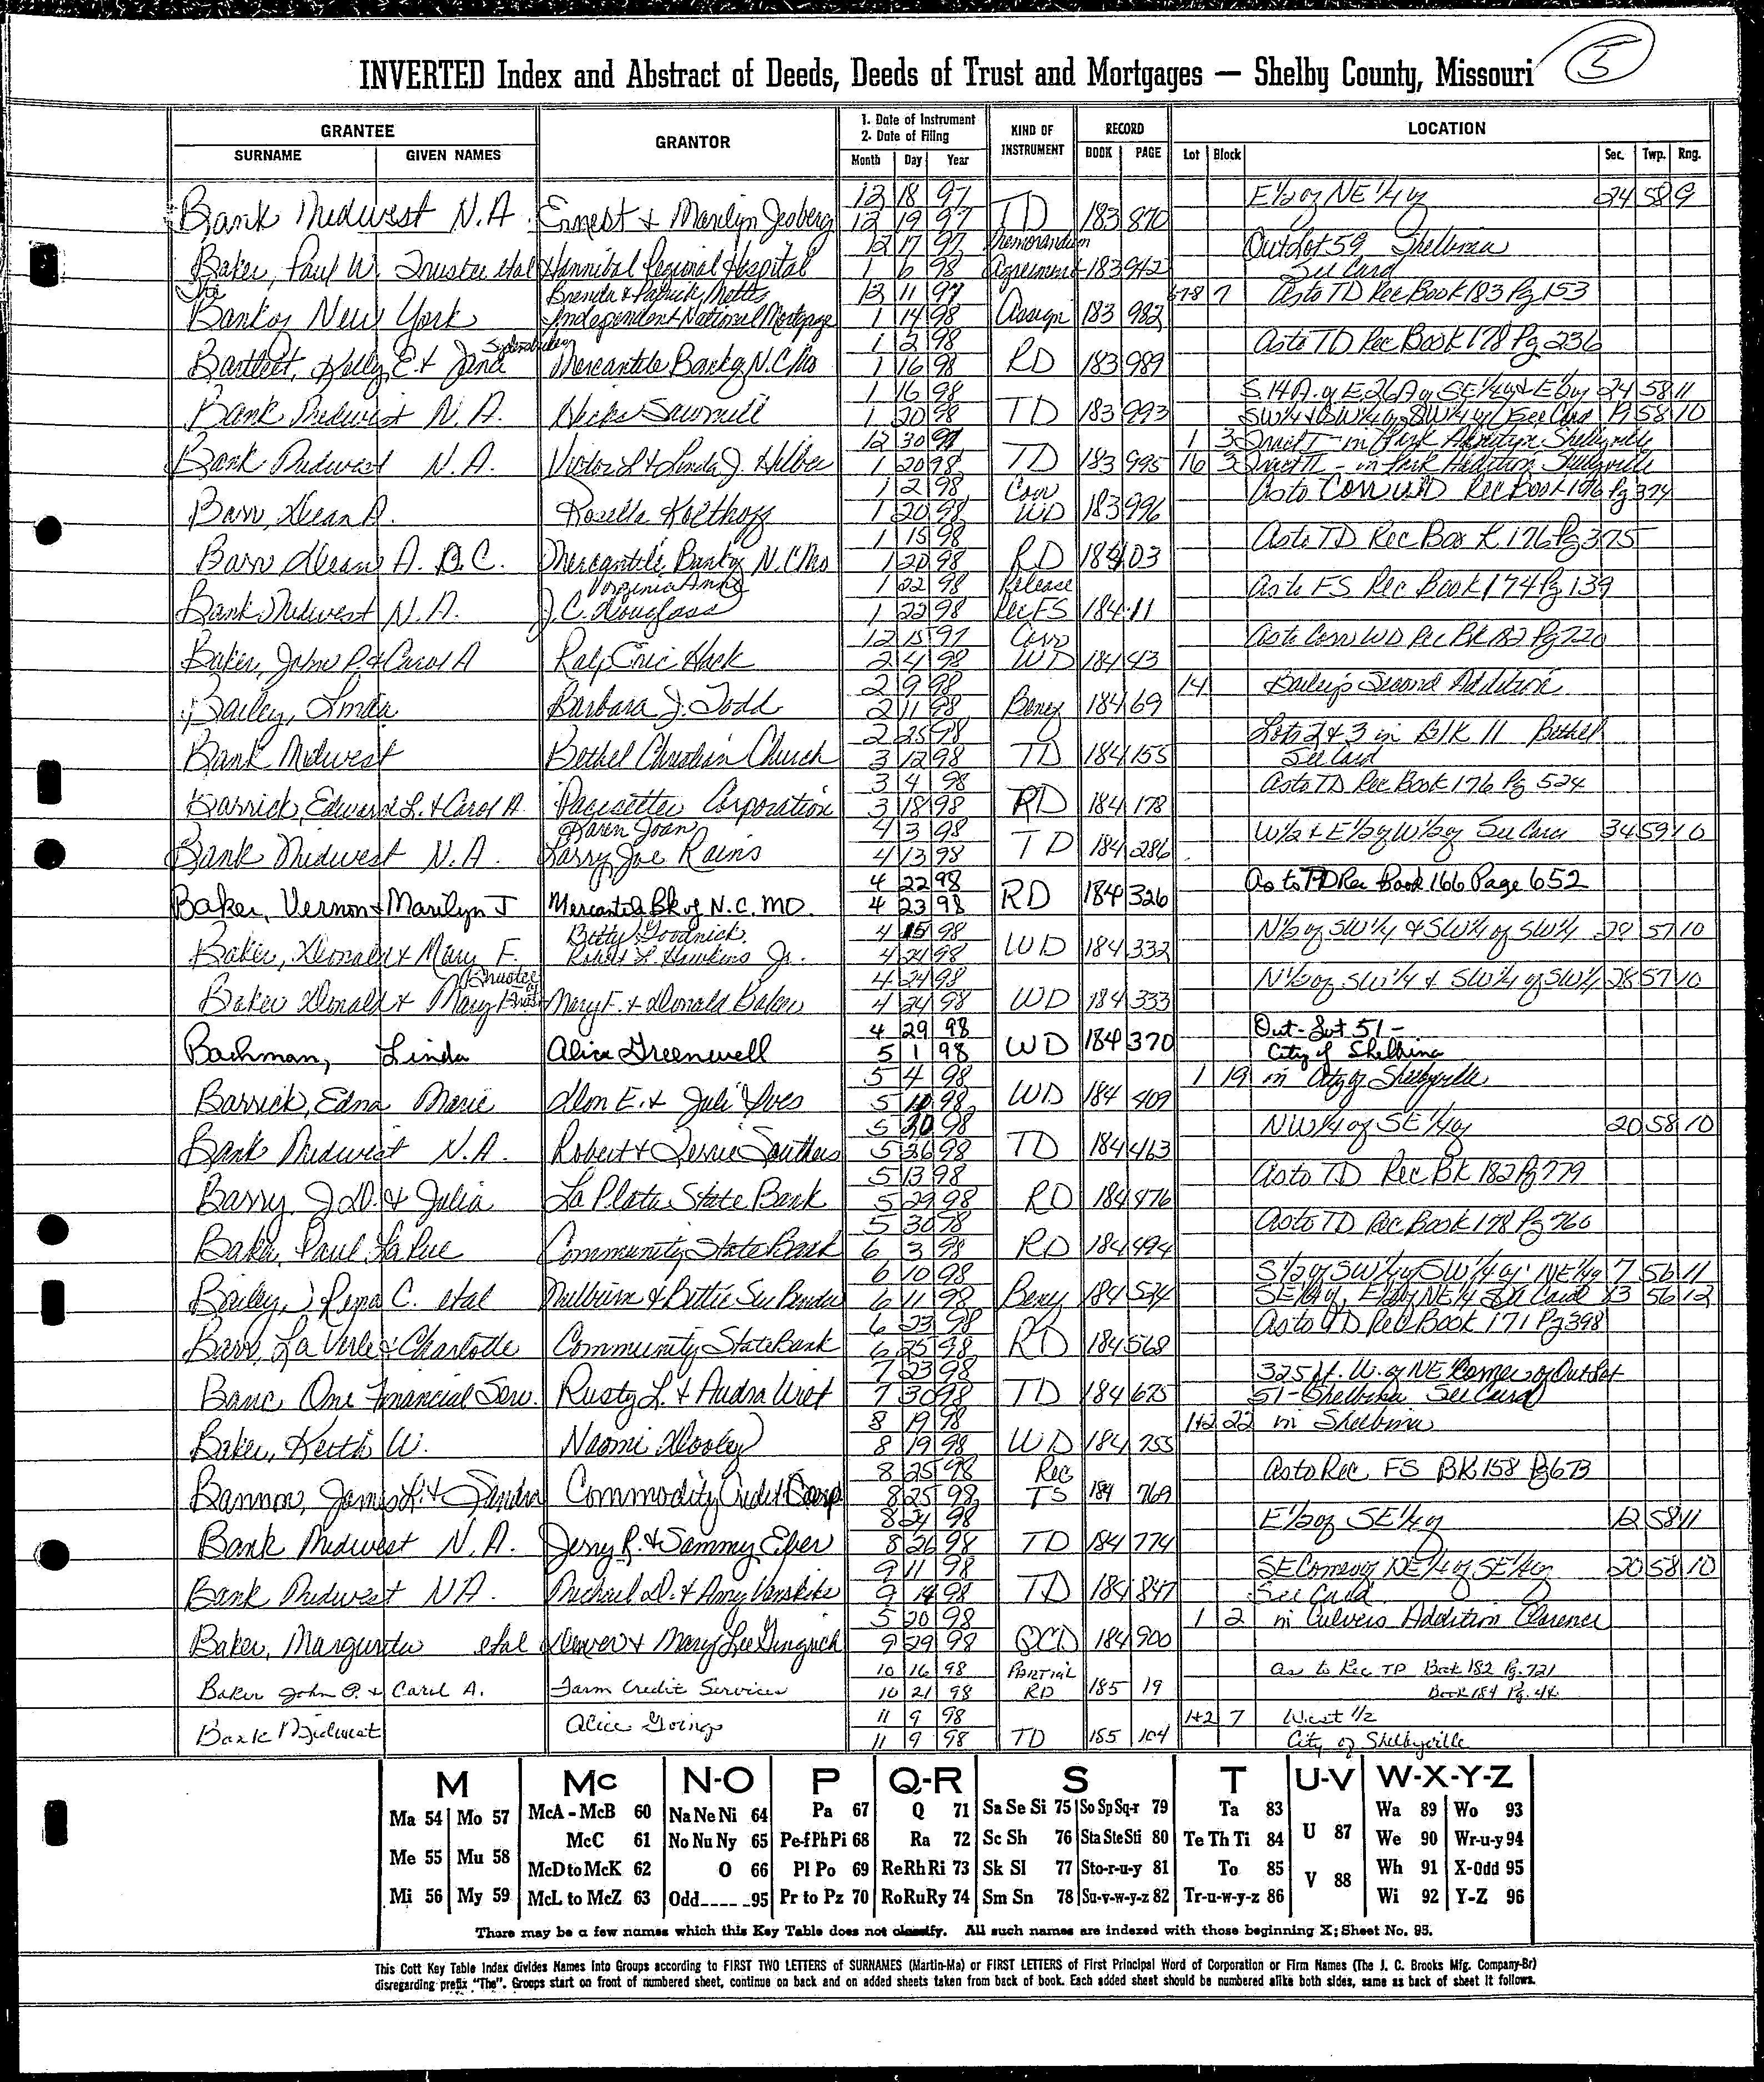 5
INVERTED Index and Abstract of Deeds, Deeds of Trust and Mortgages — Shelby County, Missouri
GRANTEE GRANTOR 1. Date of Instrument 2. Date of Filing KIND OF INSTRUMENT RECORD LOCATION
SURNAME GIVEN NAMES Month Day Year BOOK PAGE Lot Block Sec. Twp. Rng.
12 18 97 E½ of NE¼ of 24 58 9
Bank Midwest N.A. Ernest & Marilyn Jesberg 12 19 97 TD 183 870
12 17 97 Memorandum Outlot 59 Shelbina
Baker, Paul W. Trustee etal Hannibal Regional Hospital 1 6 98 Agreement 183 942 See Card
The Brenda & Patrick Metts 12 11 97 678 7 As to TD Rec Book 183 Pg 153
Bank of New York Independent National Mortgage 1 14 98 Assign 183 982
1 2 98 As to TD Rec Book 178 Pg 236
Bartlett, Kelly E. & Jana Mercantile Bank of N.C. Mo 1 16 98 RD 183 989
1 16 98 S 14 A. of E 26 A of SE¼ of & E½ of 24 58 11
Bank Midwest N.A. Hicks Sawmill 1 20 98 TD 183 993 SW¼ & SW¼ of SW¼ of See Card 19 58 10
12 30 97 1 3 Tract I - in Park Addition Shelbyville
Bank Midwest N.A. Victor L & Linda J. Hilber 1 20 98 TD 183 995 16 3 Tract II - in Park Addition Shelbyville
1 2 98 Corr As to Corr WD Rec Book 176 Pg 374
Barr, Dean A. Rosella Kolthoff 1 20 98 WD 183 996
1 15 98 As to TD Rec Book 176 Pg 375
Barr Dean A. D.C. Mercantile Bank of N.C. Mo 1 20 98 RD 184 03
Virginia Anne 1 22 98 Release As to FS Rec Book 174 Pg 139
Bank Midwest N.A. J.C. Douglass 1 22 98 Rec FS 184 11
12 15 97 Corr As to Corr WD Rec Bk 182 Pg 720
Baker, John P. & Carol A Ralp Eric Hack 2 4 98 WD 184 43
2 9 98 14 Bailey's Second Addition
Bailey, Linda Barbara J. Todd 2 11 98 Beney 184 69
2 25 98 Lots 2 & 3 in Blk 11 Bethel
Bank Midwest Bethel Christian Church 3 12 98 TD 184 155 See Card
3 4 98 As to TD Rec Book 176 Pg 524
Barrick, Edward L. & Carol A. Pacesetter Corporation 3 18 98 RD 184 178
Karen Joan 4 3 98 W½ & E½ of W½ of See Card 34 59 10
Bank Midwest N.A. Larry Joe Rains 4 13 98 TD 184 286
4 22 98 As to TD Rec Book 166 Page 652
Baker, Vernon & Marilyn J Mercantile Bk of N.C. MO. 4 23 98 RD 184 326
Betty Goodnick 4 15 98 N½ of SW¼ & SW¼ of SW¼ 28 57 10
Baker, Donald & Mary F. Robert L. Hawkins Jr. 4 24 98 WD 184 332
Trustee 4 24 98 N½ of SW¼ & SW¼ of SW¼ 28 57 10
Baker Donald & Mary Mary F. & Donald Baker 4 24 98 WD 184 333
4 29 98 Out-Lot 51-
Bachman, Linda Alice Greenwell 5 1 98 WD 184 370 City of Shelbina
5 4 98 1 19 in City of Shelbyville
Barrick, Edna Marie Don E. & Juli Ives 5 98 WD 184 409
5 20 98 NW¼ of SE¼ of 20 58 10
Bank Midwest N.A. Robert & Terrie Southers 5 26 98 TD 184 463
5 13 98 As to TD Rec Bk 182 Pg 779
Barry, J.D. & Julia La Plata State Bank 5 29 98 RD 184 476
5 30 98 As to TD Rec Book 178 Pg 760
Baker, Paul LaRue Community State Bank 6 3 98 RD 184 494
6 10 98 S½ of SW¼ of SW¼ of NE¼ 7 56 11
Bailey, Rena C. etal Milburn & Bettie Sue Bender 6 11 98 Beney 184 524 SE¼ of, E½ of NE¼ See Card 13 56 12
6 23 98 As to TD Rec Book 171 Pg 398
Barr, La Verle & Charlotte Community State Bank 6 25 98 RD 184 568
7 23 98 325 ft. W. of NE Corner of Outlot
Banc One Financial Serv. Rusty L. & Audra West 7 30 98 TD 184 675 51-Shelbina See Card
8 19 98 1+2 22 in Shelbina
Baker, Keith W. Naomi Dooley 8 19 98 WD 184 755
8 25 98 Rec As to Rec FS BK 158 Pg 673
Bannon, James L. & Sandra Commodity Credit Corp 8 25 98 TS 184 769
8 24 98 E½ of SE¼ of 12 58 11
Bank Midwest N.A. Jerry R. & Sammy Eper 8 26 98 TD 184 774
9 11 98 SE Corner of NE¼ of SE¼ of 20 58 10
Bank Midwest NA. Michael D. & Amy Vanskike 9 14 98 TD 184 847 See Card
5 20 98 1 2 in Culvers Addition Clarence
Baker, Margurite etal Denver & Mary Lee Gingrich 9 29 98 QCD 184 900
10 16 98 Partial As to Rec TD Book 182 Pg. 721
Baker John P. & Carol A. Farm Credit Services 10 21 98 RD 185 19 Book 184 Pg. 44
11 9 98 1+2 7 West ½
Bank Midwest Alice Goings 11 9 98 TD 185 104 City of Shelbyville
M Mc N-O P Q-R S T U-V W-X-Y-Z
Ma 54 Mo 57 McA - McB 60 Na Ne Ni 64 Pa 67 Q 71 Sa Se Si 75 So Sp Sq-r 79 Ta 83 U 87 Wa 89 Wo 93
Me 55 Mu 58 McC 61 No Nu Ny 65 Pe-f Ph Pi 68 Ra 72 Sc Sh 76 Sta Ste Sti 80 Te Th Ti 84 We 90 Wr-u-y 94
McD to McK 62 O 66 Pl Po 69 Re Rh Ri 73 Sk Sl 77 Sto-r-u-y 81 To 85 V 88 Wh 91 X-Odd 95
Mi 56 My 59 McL to McZ 63 Odd_____95 Pr to Pz 70 Ro Ru Ry 74 Sm Sn 78 Su-v-w-y-z 82 Tr-u-w-y-z 86 Wi 92 Y-Z 96
There may be a few names which this Key Table does not classify. All such names are indexed with those beginning X; Sheet No. 95.
This Cott Key Table Index divides Names into Groups according to FIRST TWO LETTERS of SURNAMES (Martin-Ma) or FIRST LETTERS of First Principal Word of Corporation or Firm Names (The J. C. Brooks Mfg. Company-Br)
disregarding prefix "The". Groups start on front of numbered sheet, continue on back and on added sheets taken from back of book. Each added sheet should be numbered alike both sides, same as back of sheet it follows.